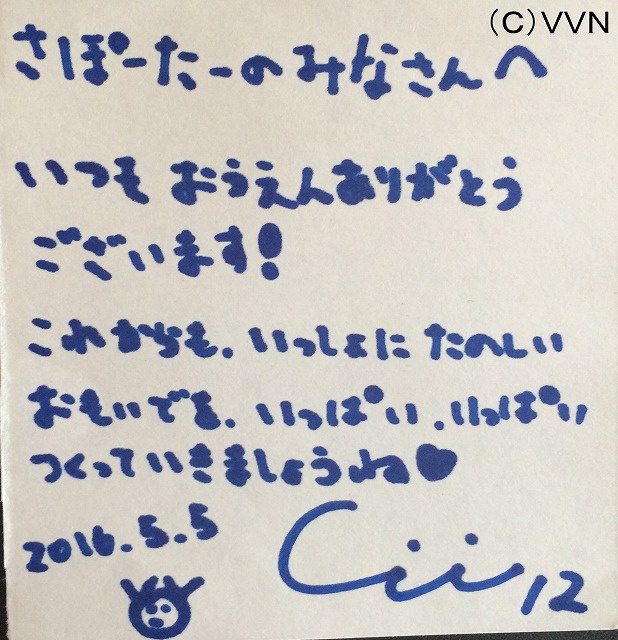 (C)VVN
さぽーたーのみなさんへ
いつもおうえんありがとう
ございます!
これからも、いっしょにたのしい
おもいでを、いっぱい、いっぱい
つくっていきましょうね♥
2016.5.5
Cii 12